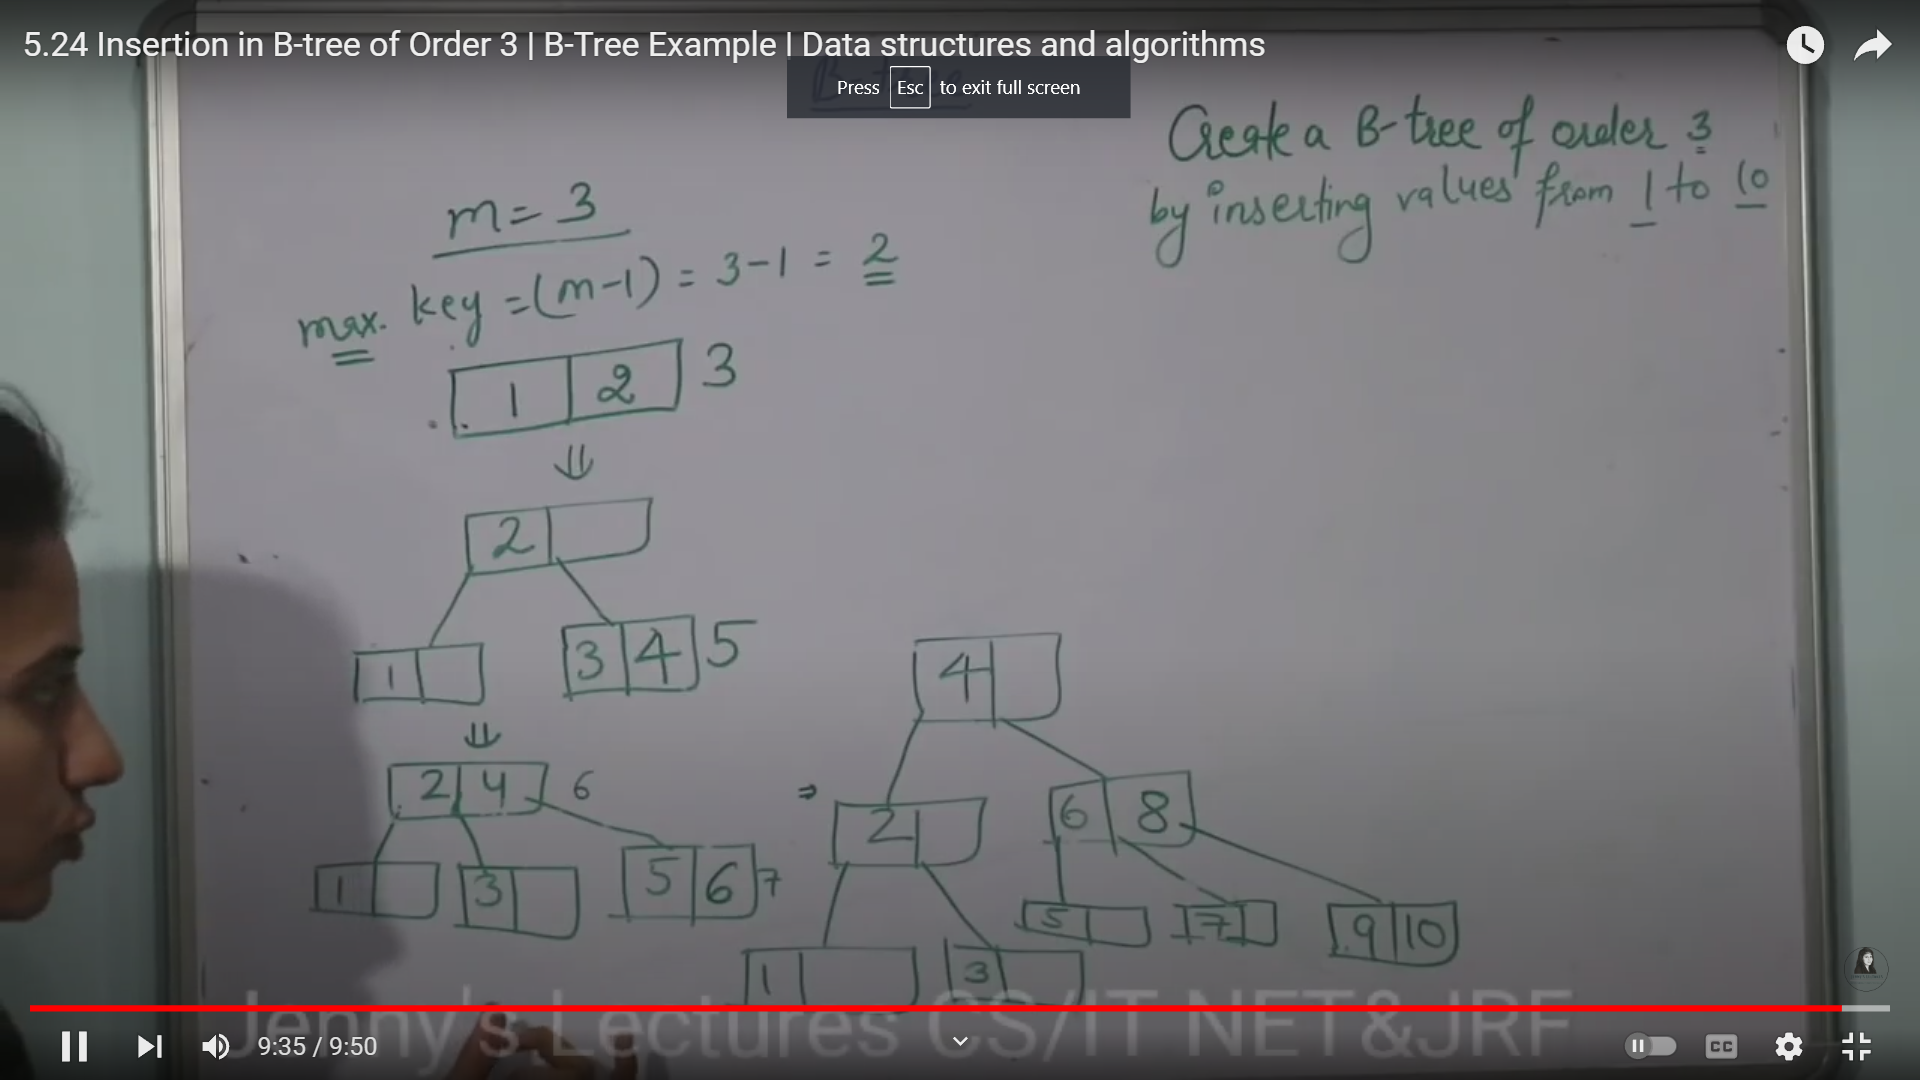 5.24 Insertion in B-tree of Order 3 | B-Tree Example I Data structures and algorithms
Press Esc to exit full screen
Create a B-tree of order 3
by inserting values from 1 to 10
m = 3
max. key = (m-1) = 3-1 = 2
1 2 3
⇓
2
1 3 4 5
⇓
2 4 6
1 3 5 6 7
⇒
4
2 6 8
5 7 9 10
1 3
Jenny's Lectures CS/IT NET&JRF
9:35 / 9:50
CC